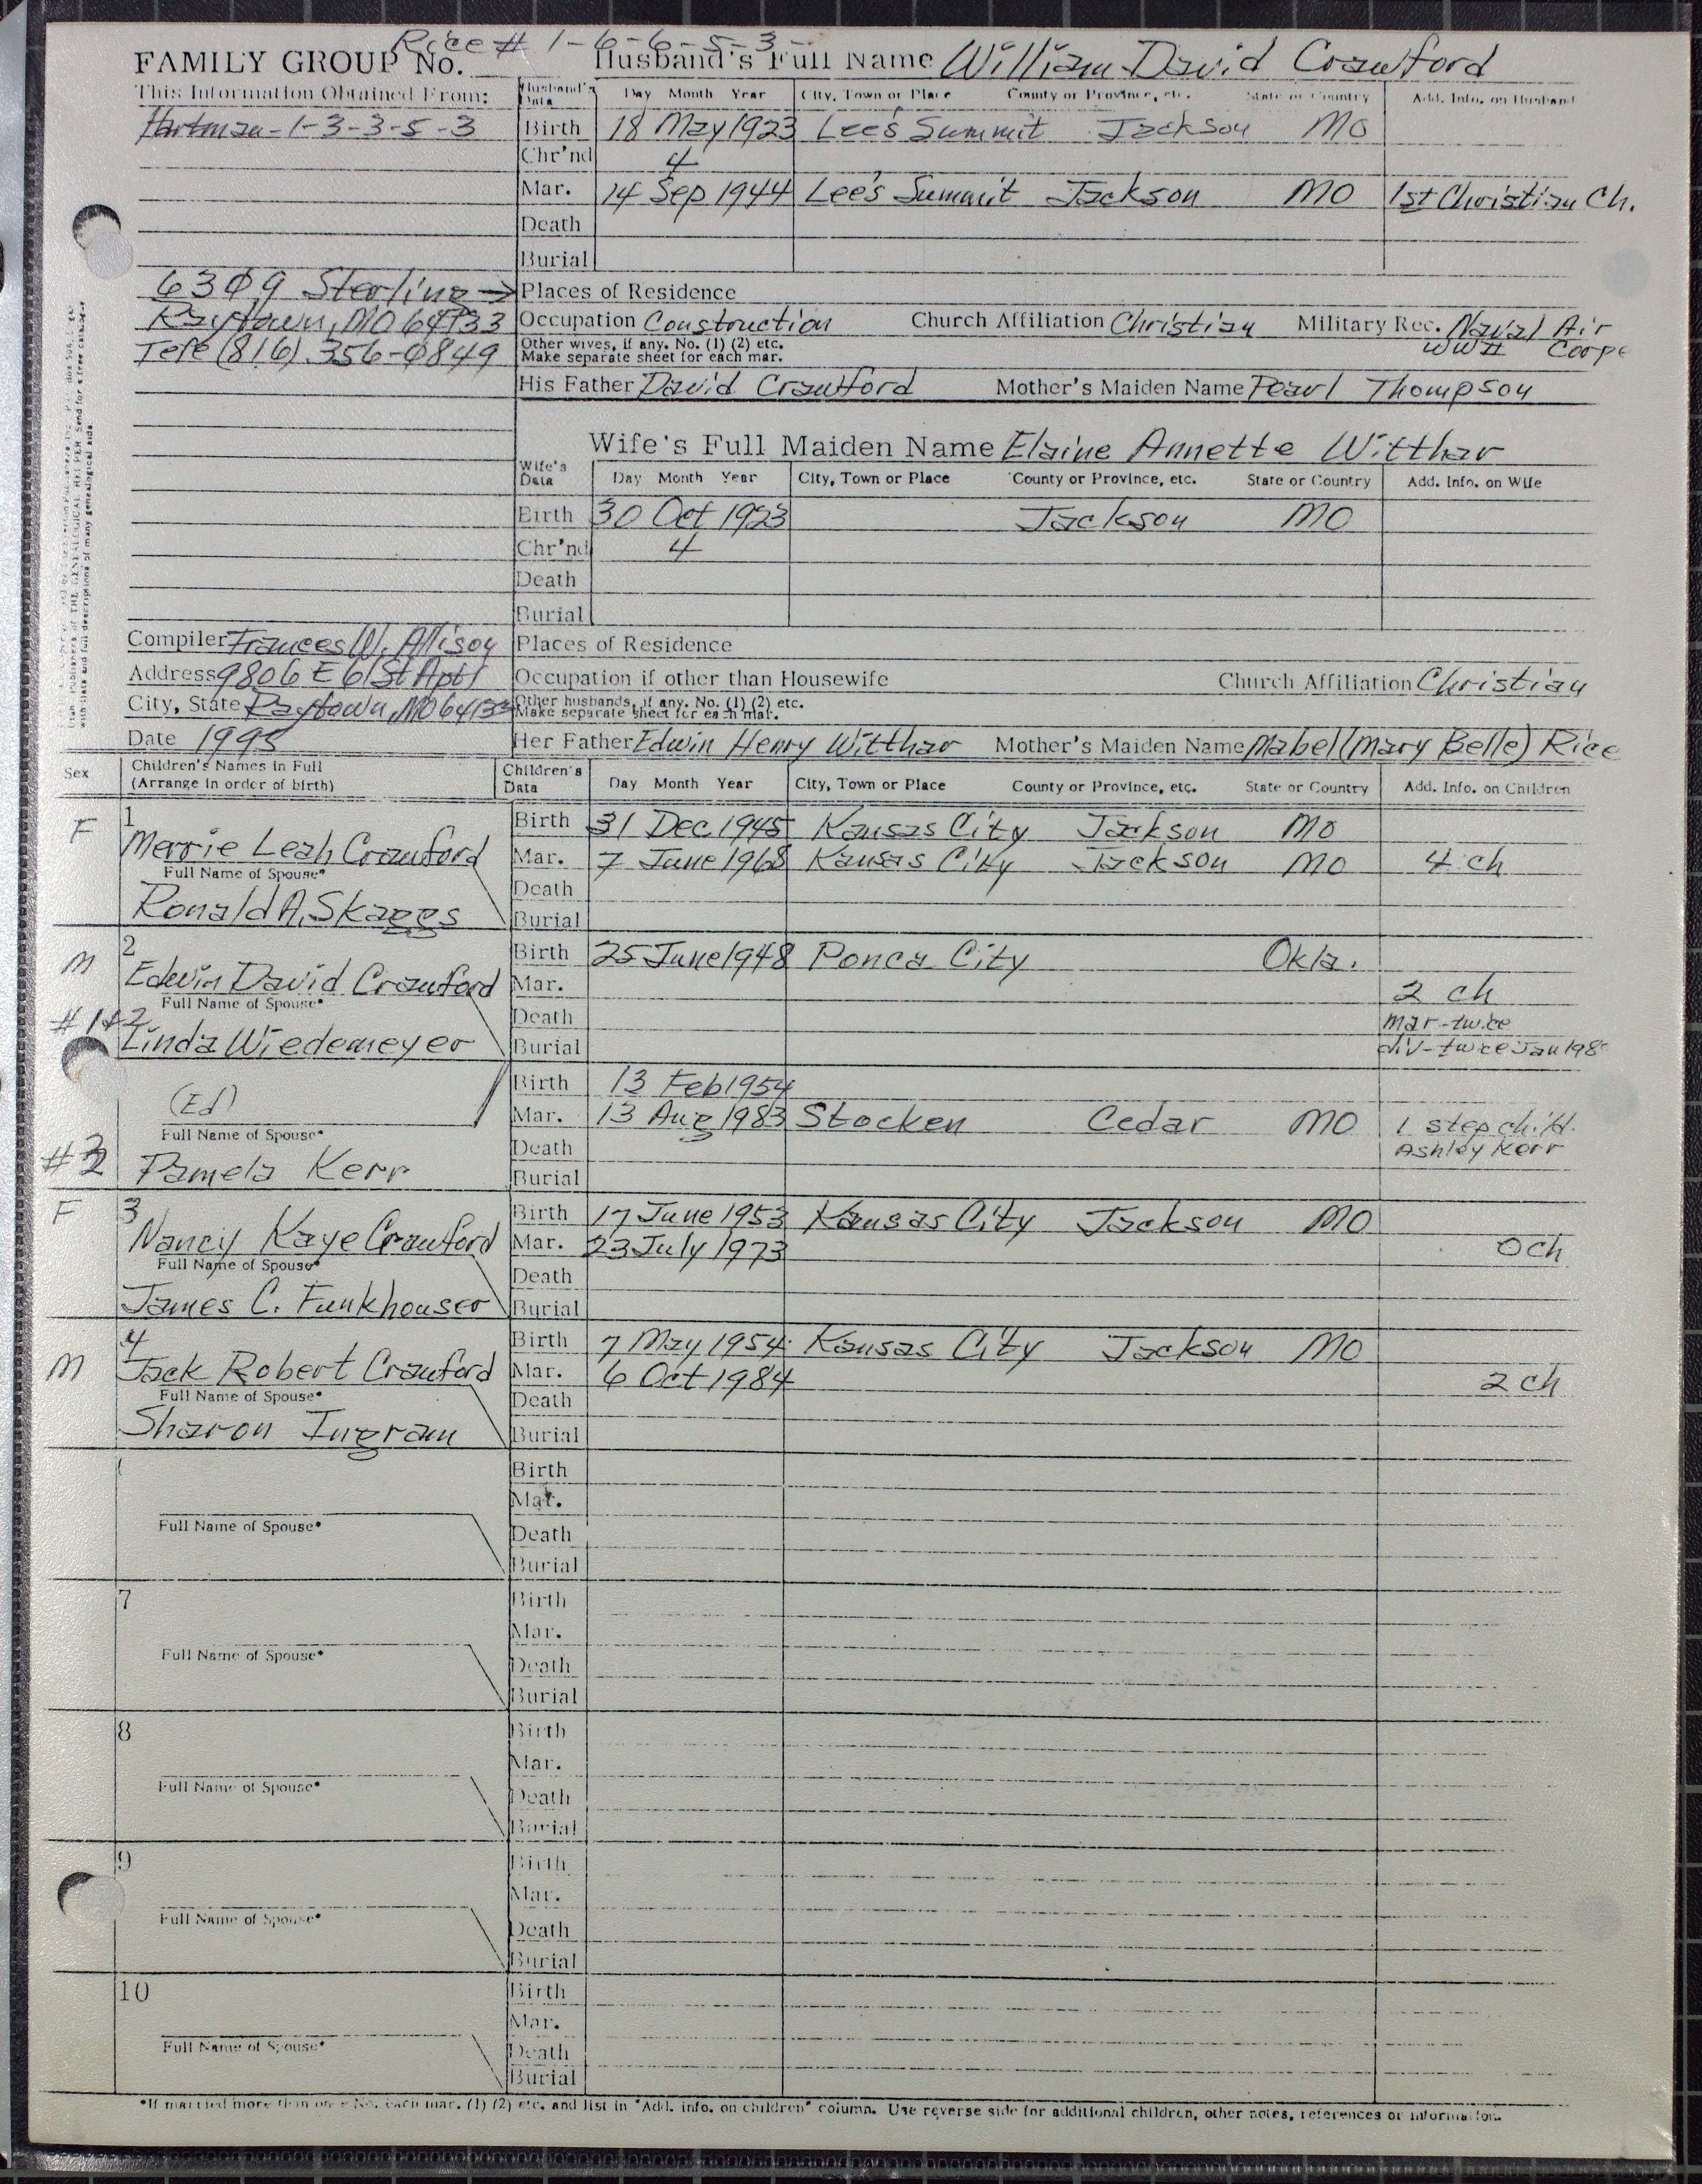 Rice # 1-6-6-5-3-
FAMILY GROUP No. Husband's Full Name William David Crawford
This Information Obtained From: Husband's Data Day Month Year City, Town or Place County or Province, etc. State or Country Add. Info. on Husband
Hartman-1-3-3-5-3 Birth 18 May 1923 Lee's Summit Jackson MO
Chr'nd 4
Mar. 14 Sep 1944 Lee's Summit Jackson MO 1st Christian Ch.
Death
Burial
6309 Sterling → Places of Residence
Raytown, MO 64133 Occupation Construction Church Affiliation Christian Military Rec. Naval Air
WWII Corps
Tele (816) 356-0849 Other wives, if any. No. (1) (2) etc.
Make separate sheet for each mar.
His Father David Crawford Mother's Maiden Name Pearl Thompson
Wife's Full Maiden Name Elaine Annette Witthar
Wife's Data Day Month Year City, Town or Place County or Province, etc. State or Country Add. Info. on Wife
Birth 30 Oct 1923 Jackson MO
Chr'nd 4
Death
Burial
Compiler Frances W. Allison Places of Residence
Address 9806 E 61 St Apt 1 Occupation if other than Housewife Church Affiliation Christian
City, State Raytown, MO 64133 Other husbands, if any. No. (1) (2) etc.
Make separate sheet for each mar.
Date 1995 Her Father Edwin Henry Witthar Mother's Maiden Name Mabel (Mary Belle) Rice
Sex Children's Names in Full
(Arrange in order of birth) Children's Data Day Month Year City, Town or Place County or Province, etc. State or Country Add. Info. on Children
F 1 Birth 31 Dec 1945 Kansas City Jackson MO
Merrie Leah Crawford Mar. 7 June 1968 Kansas City Jackson MO 4 ch
Full Name of Spouse* Death
Ronald A. Skaggs Burial
M 2 Birth 25 June 1948 Ponca City Okla.
Edwin David Crawford Mar. 2 ch
Full Name of Spouse* Death mar-twice
#1+2 Linda Wiedemeyer Burial div-twice Jan 198
Birth 13 Feb 1954
(Ed) Mar. 13 Aug 1983 Stocken Cedar MO 1 step child.
Full Name of Spouse* Death Ashley Kerr
#3 Pamela Kerr Burial
F 3 Birth 17 June 1953 Kansas City Jackson MO
Nancy Kaye Crawford Mar. 23 July 1973 0 ch
Full Name of Spouse* Death
James C. Funkhouser Burial
4 Birth 7 May 1954 Kansas City Jackson MO
M Jack Robert Crawford Mar. 6 Oct 1984 2 ch
Full Name of Spouse* Death
Sharon Ingram Burial
Birth
Mar.
Full Name of Spouse* Death
Burial
7 Birth
Mar.
Full Name of Spouse* Death
Burial
8 Birth
Mar.
Full Name of Spouse* Death
Burial
9 Birth
Mar.
Full Name of Spouse* Death
Burial
10 Birth
Mar.
Full Name of Spouse* Death
Burial
*If married more than once No. each mar. (1) (2) etc. and list in "Add. info. on children" column. Use reverse side for additional children, other notes, references or information.